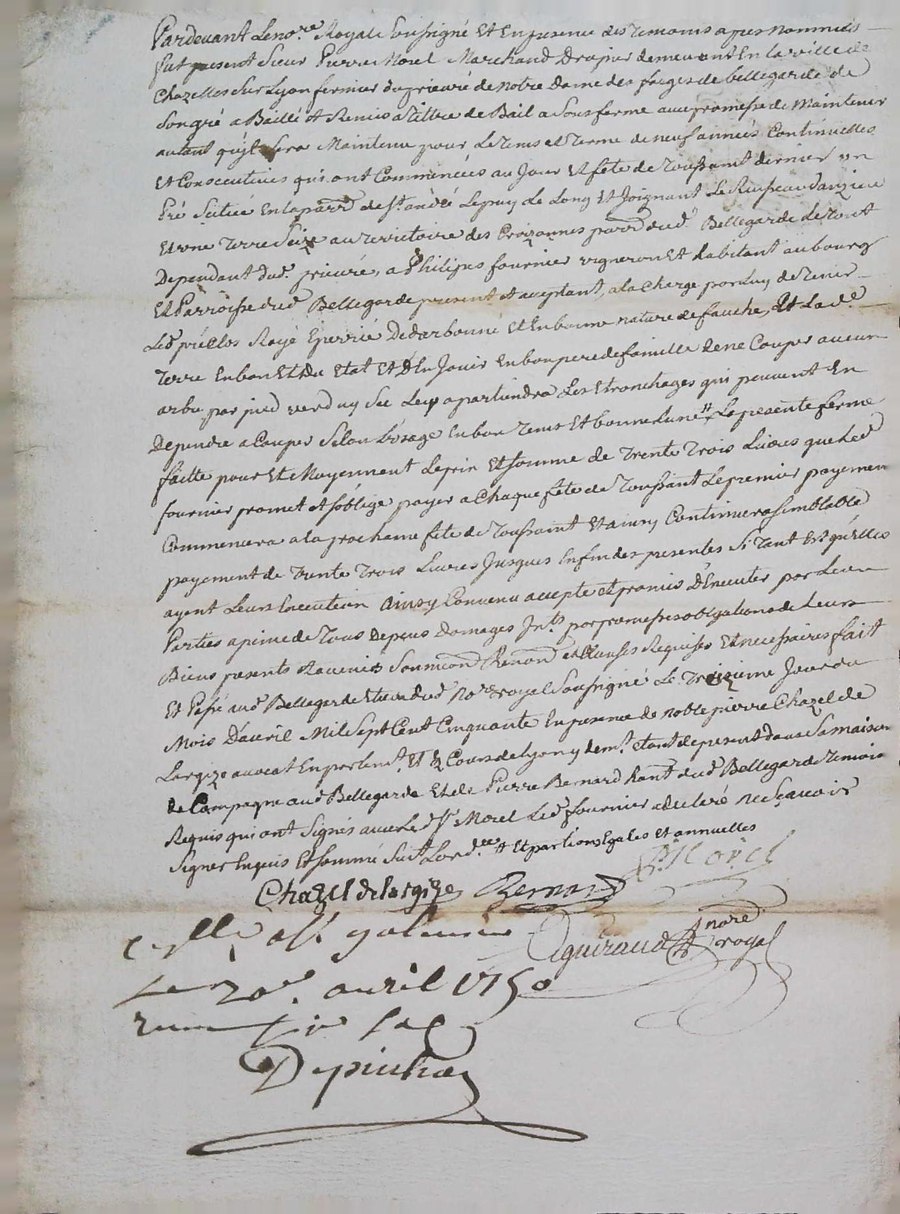 Pardevant Le no.re Royal Soussigné Et En presence des temoins apres nommés
fut present Sieur Pierre Morel Marchand Drapier demeurant En la ville de
Chazelles Sur Lyon fermier du prieuré de notre Dame des forges de bellegarde de
Son gré a Baillé et Remis a Tiltre de Bail a Sous ferme avec promesse de Maintenir
autant qu'il Sera Maintenu pour Le tems et terme de neuf années Continuelles
Et Consecutives qui ont Commencées au Jour Et fête de toussaint dernier un
Pré Scitué En la parr.e de S.t andré Le puy de Long Et Joignant Le Ruisseau d'anzieu
Et une terre Size au territoire des Croizannes parr.e dud. Bellegarde Le tout
Dependant dud. prieuré, a Philipes fournier vigneron Et habitant au bourg
Et Parroisse dud Bellegarde present et aceptant, a la Charge par Luy de tenir
Led. pré Clos Rayé Eperrié De darbonné Et En bonne nature de fauche, Et La d.e
terre En bon Et Du Etat Et D'En Jouir En bon pere de famille De ne Couper aucun
arbre par pied verd ny Sec Luy apartiendra Les Etronchages qui peuvent En
Dependre a Couper Selon L'usage En bon tems Et bonne Lune # La presente ferme
faitte pour Et Moyennent Le prix Et Somme de trente trois Livres que Led
fournier promet et s'oblige payer a Chaque fête de toussaint Le premier payement
Commencera a la prochaine fête de toussaint Et ainsy Continuera Semblable
payement de trente trois Livres Jusques En fin des presentes Si tant Est qu'elles
ayent Leurs Execution Ainsy Convenu accepté et promis D'Executer par Les
Parties a peine de tous Depens Domages Jn.ts par promesses obligations de Leurs
Biens presents Et avenir Soumi.ons Renon.ons et Clauses Requises Et necessaires fait
Et Passé aud Bellegarde Etude dud no.re royal Soussigné Le Treizieme Jour du
Mois D'avril Mil Sept Cent Cinquante En presence de noble pierre Chazel de
Largize avocat En parlem.t Et Es Cours de Lyon y dem.t etant de present dans Sa maison
de Campagne aud Bellegarde Et de Pierre Bernard hant dud Bellegarde temoins
Requis qui ont Signés avec Le d. S.r Morel Led fournier a declaré ne Sçavoir
Signer Enquis Et Sommé Suiv.t Lord.ce # Et par lions Egales et annuelles
P. Morel
Chazel de largize Bernard
Aguiraud no.re royal
Le 20.e avril 1750